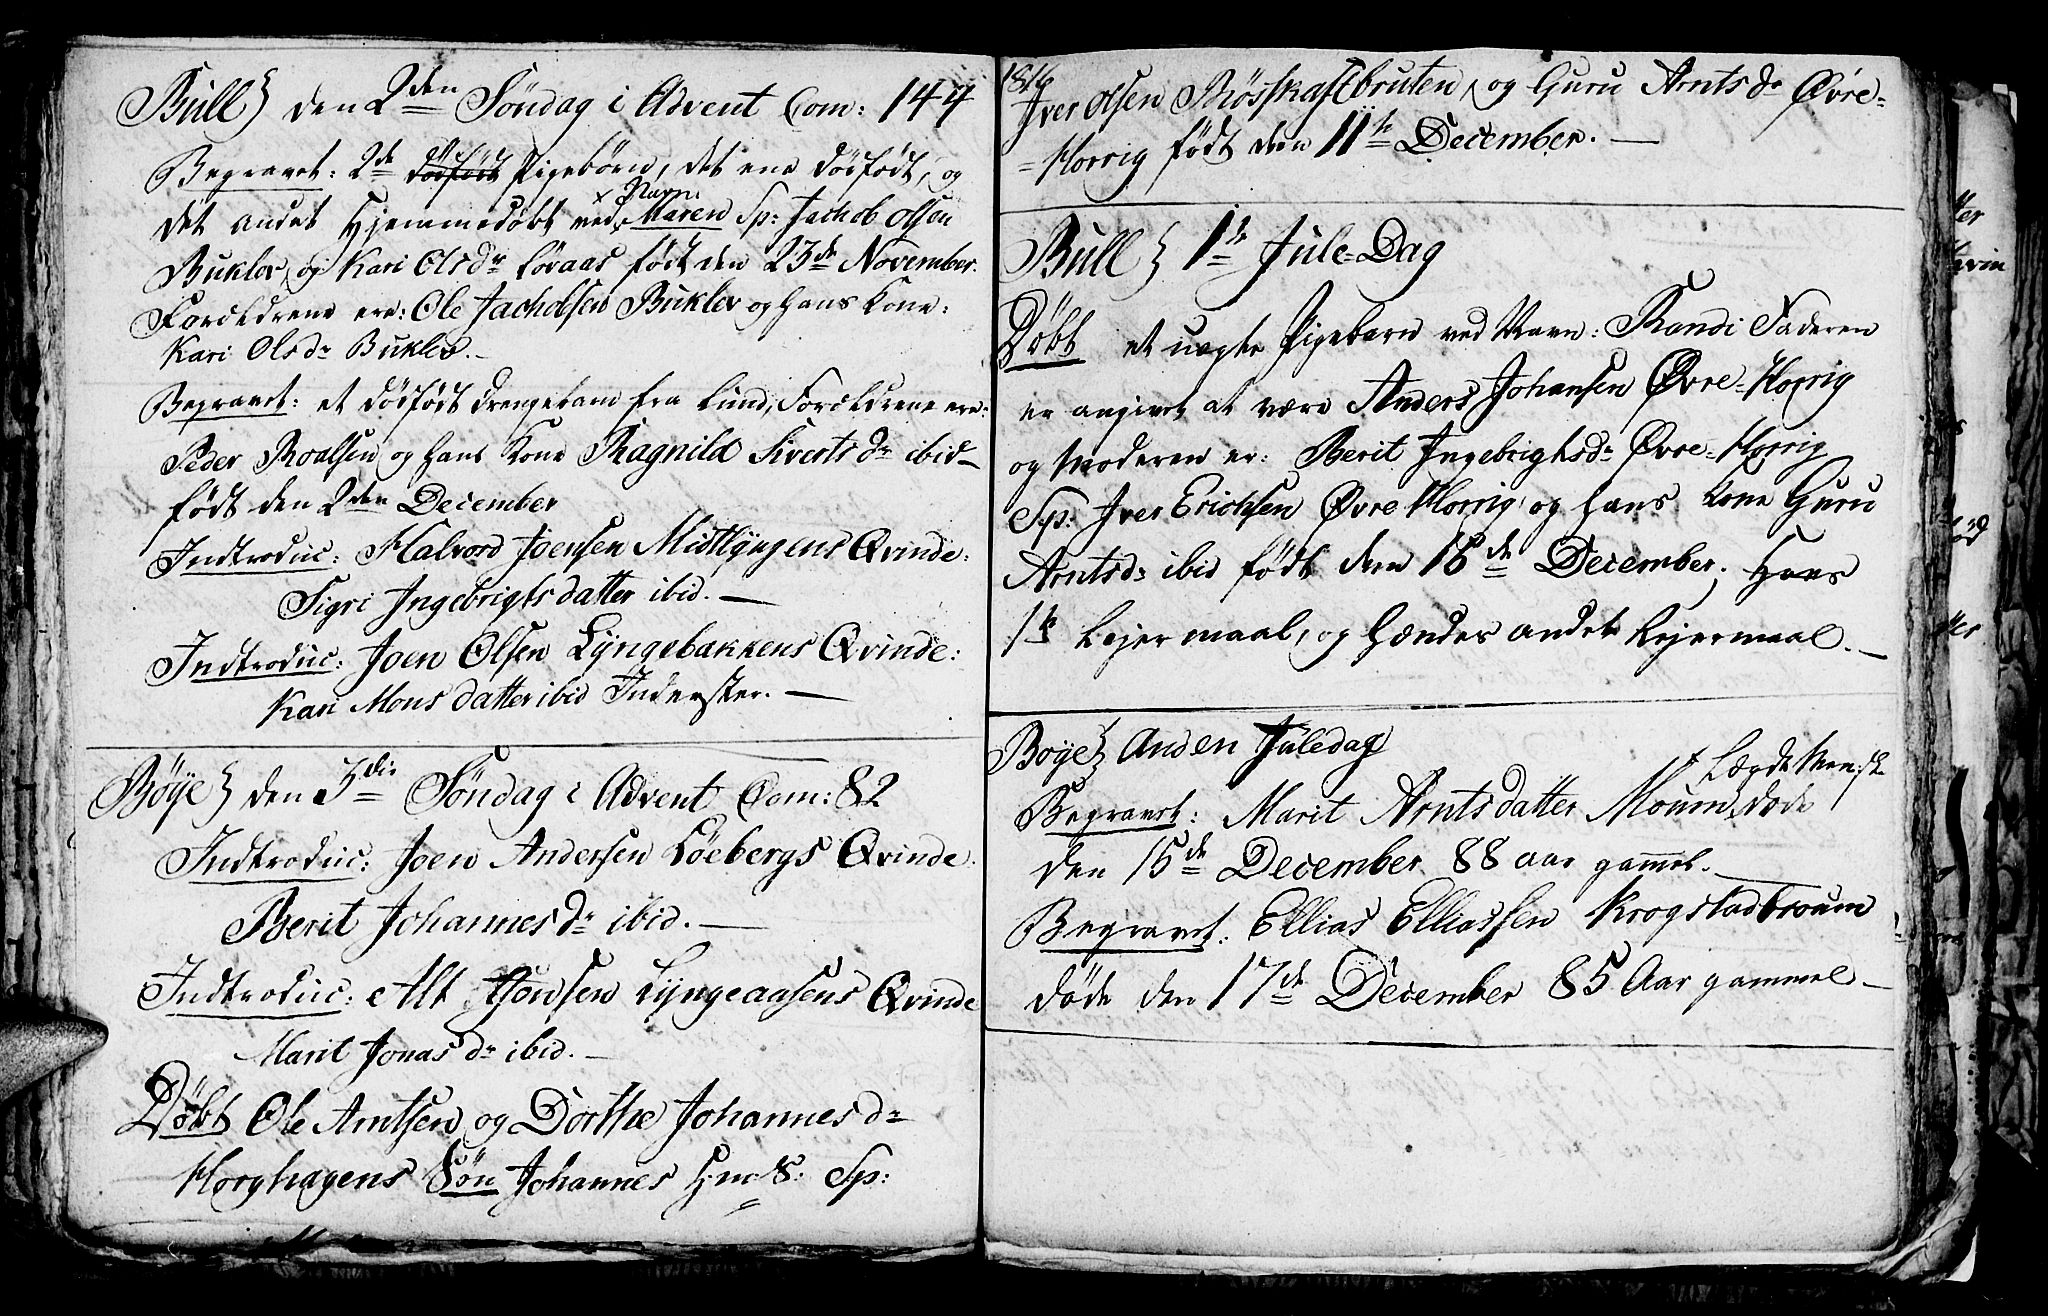 Bull} den 2den Søndag i Advent Com: 144
Begravet: 2de dødfødt Pigebørn, det ene dødfødt, og
det andet Hjemmedøbt ved Navn Maren Sp: Jachob Olsen
Buklev og Kari Olsdr Løvaas født den 23de November.
Forældrene ere: Ole Jachobsen Buklev og Hans Kone:
Kari Olsdr Buklev.
Begravet: et dødfødt Drengebarn fra Lund, Forældrene ere:
Peder Roalsen og Hans Kone Ragnild Sivertsdr ibid
født den 2den December
Indtroduc: Halvord Joensen Midtlyngens Qvinde:
Sigri Ingebrigtsdatter ibid.
Indtroduc: Joen Olsen Lyngebakkens Qvinde:
Kari Monsdatter ibid Inderster.
Böye} den 3die Søndag i Advent Com: 82
Indtroduc: Joen Andersen Löebergs Qvinde
Berit Johannesdr ibid.
Indtroduc: Alt Jonsen Lyngeaasens Qvinde
Marit Jonasdr ibid.
Døbt Ole Arntsen og Dorthe Johannesdr
Horghagens Søn Johannes Hm8: Sp:
1816
Iver Olsen Røsskaftbruten, og Guru Arntsdr Øvre=
=Horrig født den 11te December.
Bull} 1te Jule=Dag
Døbt et uægte Pigebarn ved Navn: Randi Faderen
er angivet at være Anders Johansen Øvre=Horrig
og Moderen er: Berit Ingebrigtsdr Øvre=Horrig
Sp: Iver Erichsen Øvre Horrig, og Hans Kone Guru
Arntsd: ibid født den 16de December. Hans
1te Lejermaal, og Hendes andet Lejermaal.
Böye} Anden Juledag
Begravet: Marit Arntsdatter Moum, Lægdsmensk døde
den 15de December 88 aar gammel.
Begravet: Ellias Elliassen Krogstadtrøum
døde den 17de December 85 Aar gammel